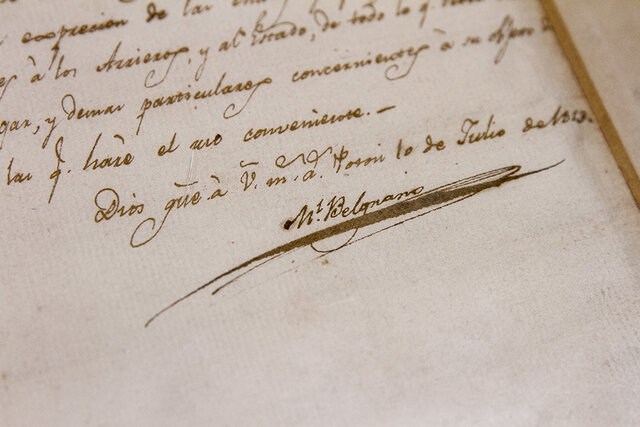 exprecion de las
es à los Arrieros, y al Estado, de todo lo q.
gar, y demas particulares concernientes à su
las q. haré el uso conveniente.—
Dios gũe à V. m. a. Potosi 10 de Julio de 1813.
M.l Belgrano